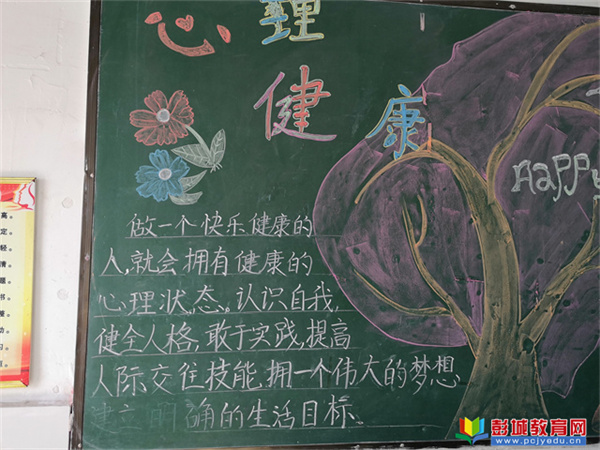 心理
健康
Happy
做一个快乐健康的
人,就会拥有健康的
心理状态。认识自我,
健全人格,敢于实践,提高
人际交往技能,拥一个伟大的梦想
建立明确的生活目标。
高。
定。
轻。
情。
题。
书。
座。
动。
习。
彭城教育网
www.pcjyedu.cn